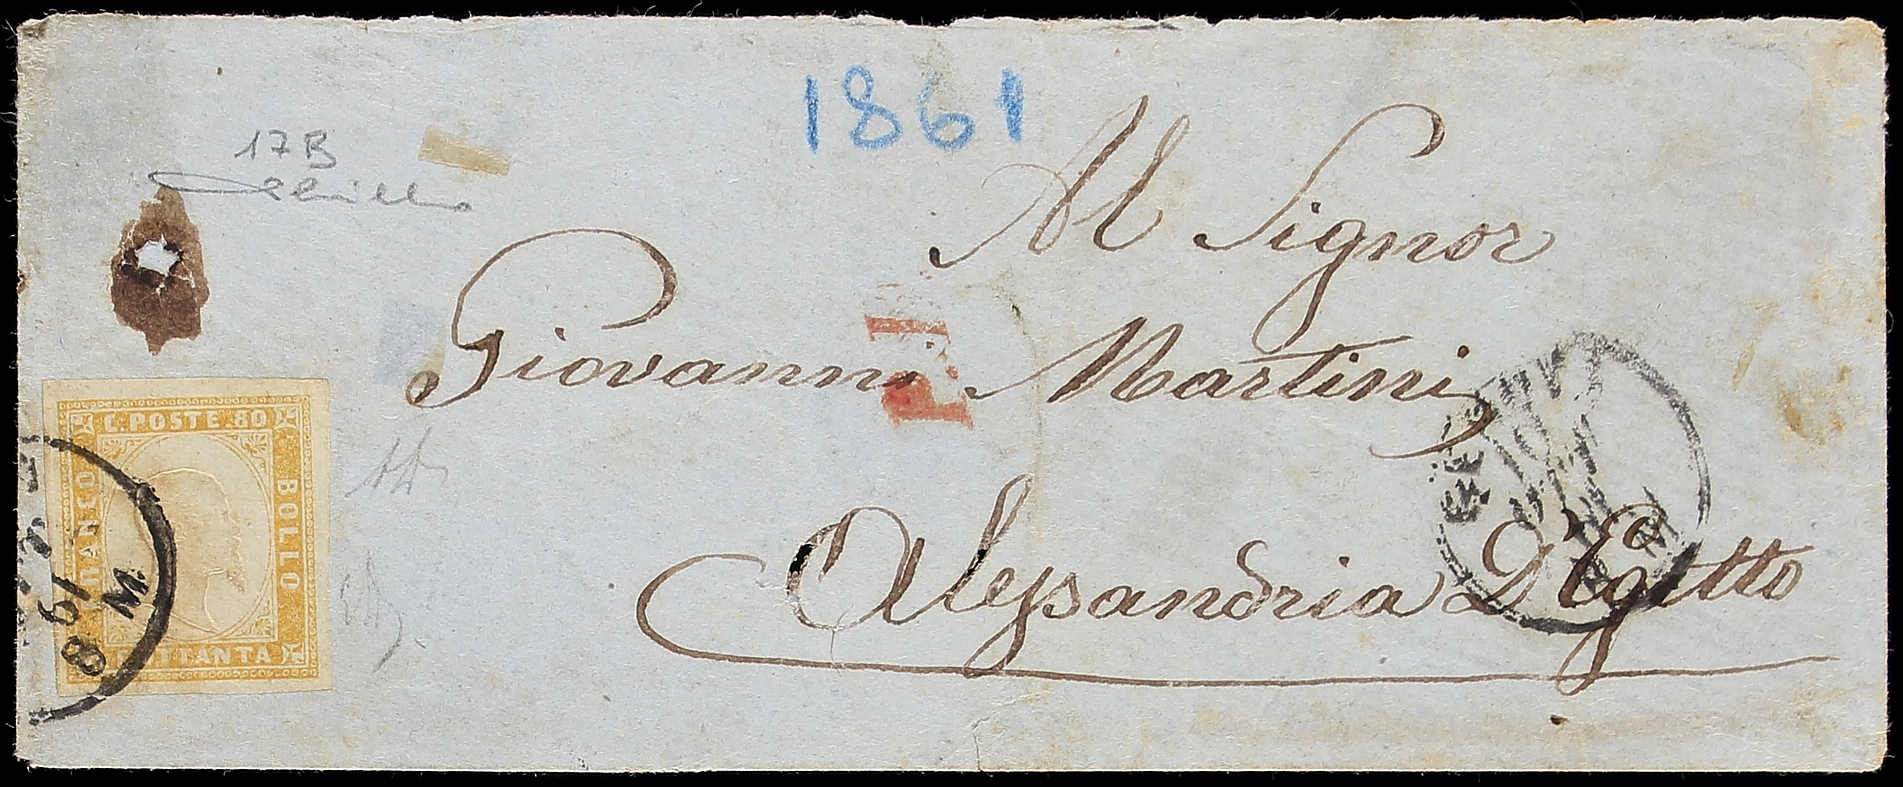 1861
17B
Al Signor
Giovanni Martini
Alessandria D'Egitto
P.D.
C. POSTE 80
FRANCO
BOLLO
OTTANTA
61
8 M